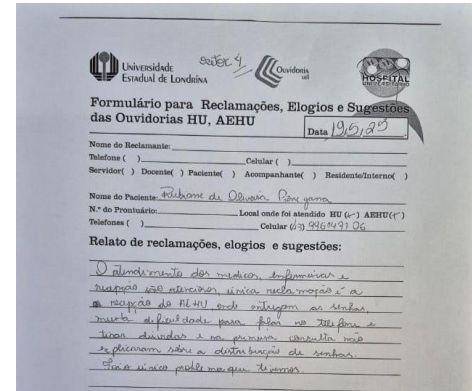 Universidade
Estadual de Londrina
setor 4
Ouvidoria
uel
HOSPITAL
UNIVERSITÁRIO
Formulário para Reclamações, Elogios e Sugestões
das Ouvidorias HU, AEHU
Data 19,5,25
Nome do Reclamante:
Telefone ( ) Celular ( )
Servidor( ) Docente( ) Paciente( ) Acompanhante( ) Residente/Interno( )
Nome do Paciente: de Oliveira
N.º do Prontuário: Local onde foi atendido HU (✓) AEHU(✓)
Telefones ( ) Celular (43) 996149106
Relato de reclamações, elogios e sugestões:
O atendimento dos medicos, enfermeiras e
recepção são atenciosos, única reclamação é a
recepção do AEHU, onde entregam as senhas,
muita dificuldade para falar no telefone e
tirar dúvidas e na primeira consulta não
explicaram sobre a distribuição de senhas.
Foi o único problema que tivemos.